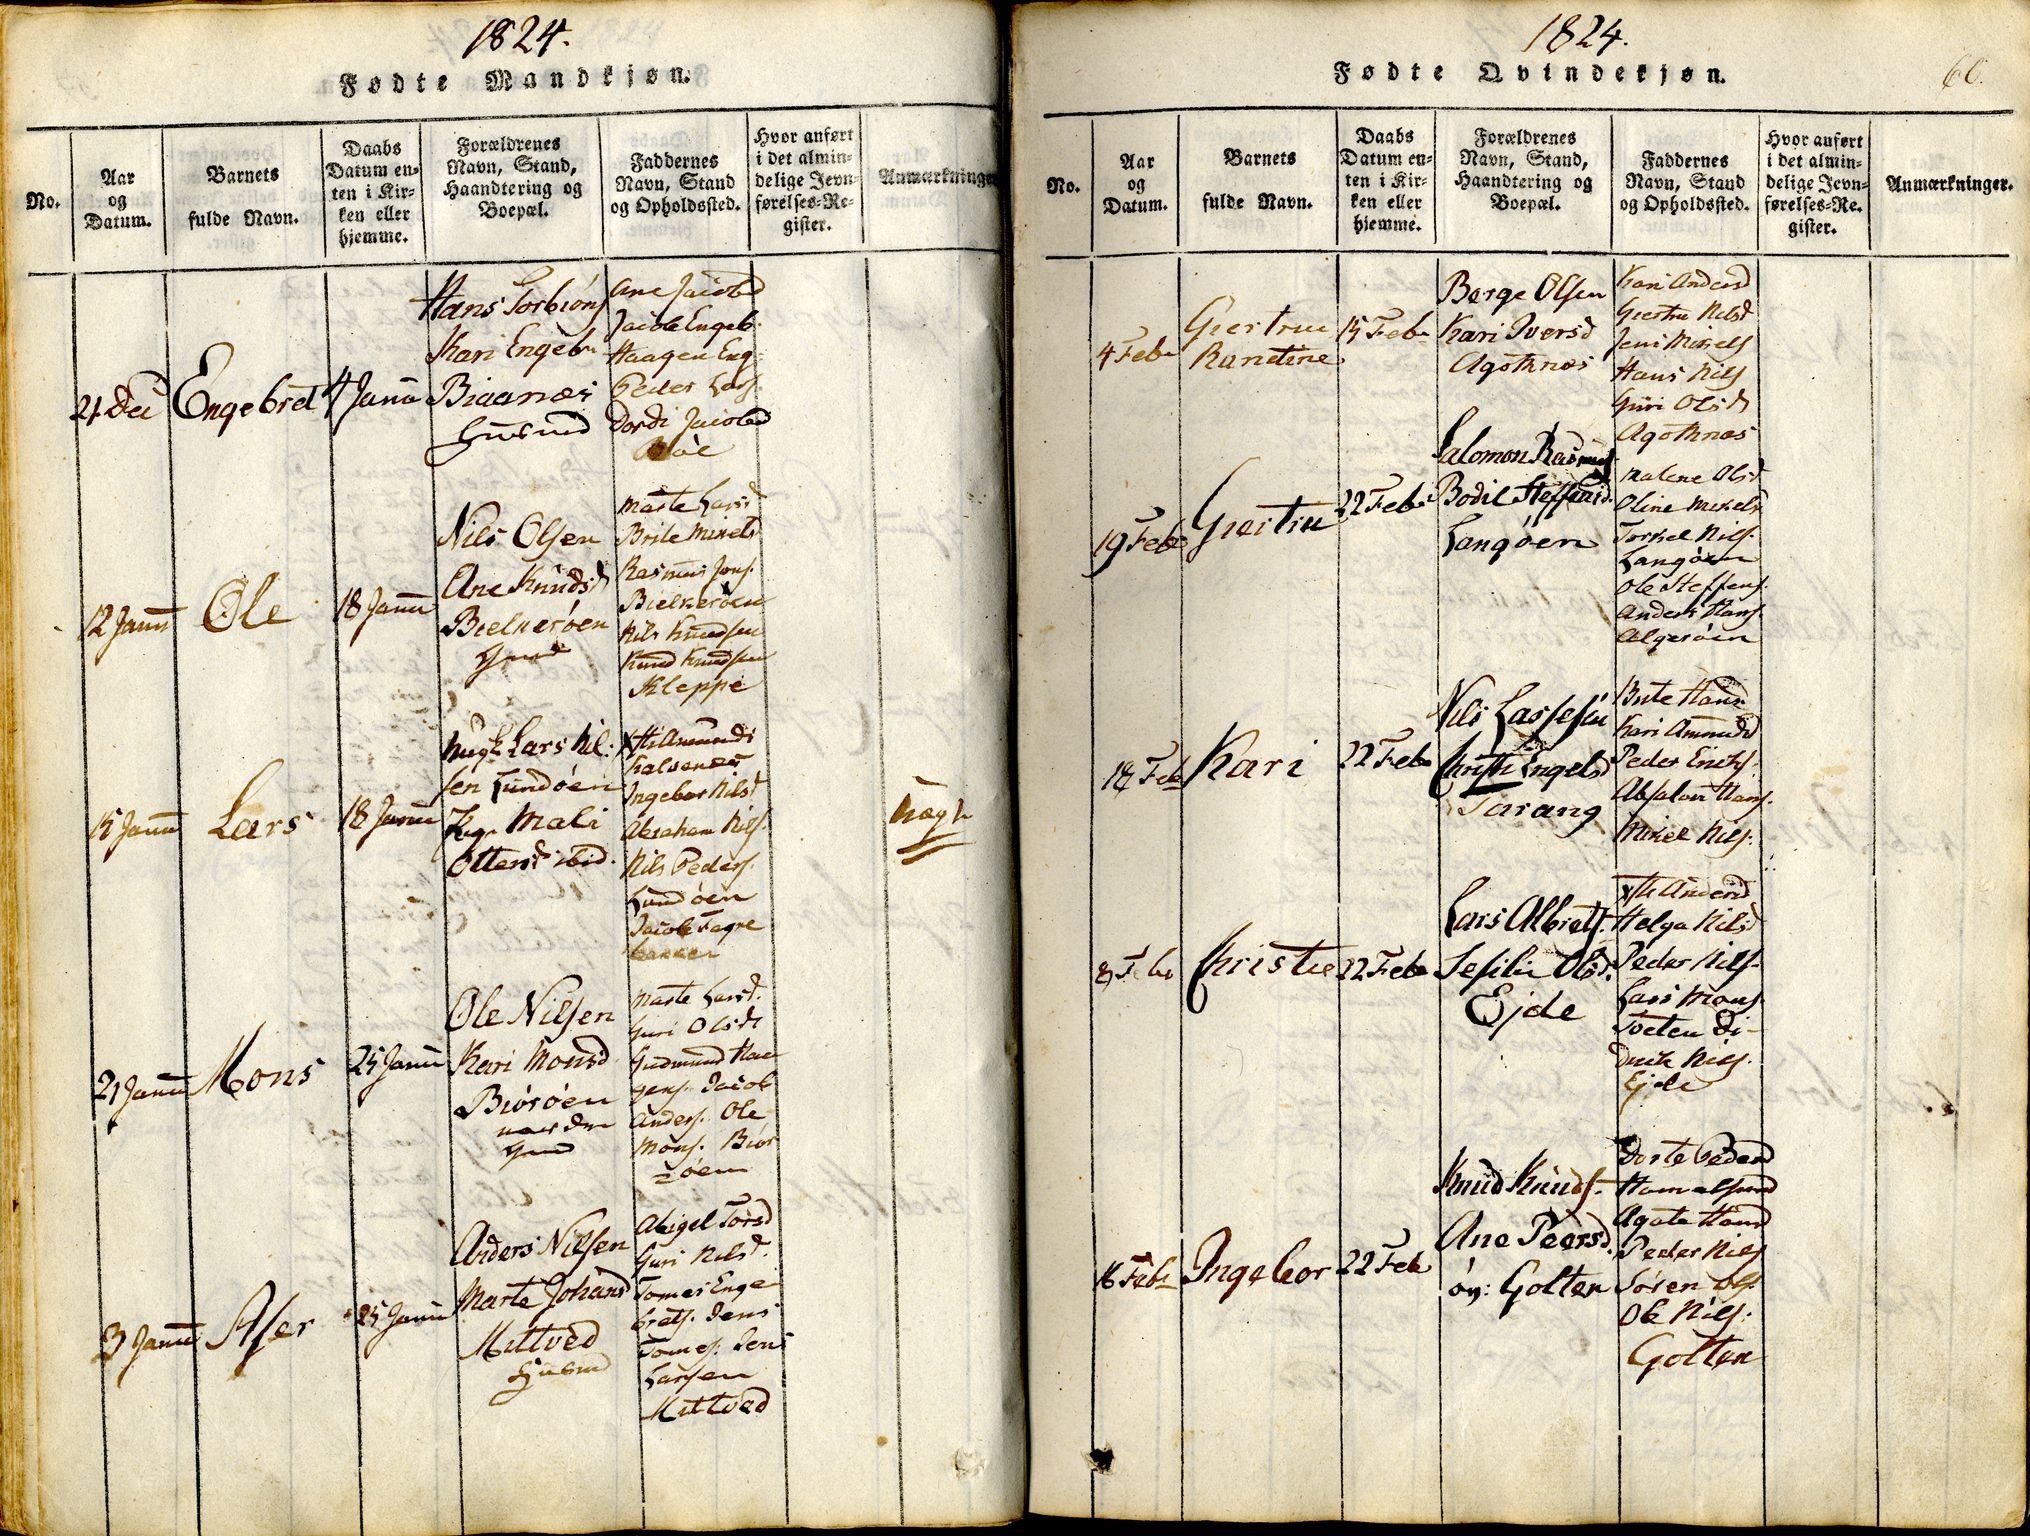 1824.
Fødte Mandkjøn.
No.
Aar
og
Datum.
Barnets
fulde Navn.
Daabs
Datum en-
ten i Kir-
ken eller
hjemme.
Forældrenes
Navn, Stand,
Haandtering og
Boepæl.
Faddernes
Navn, Stand
og Opholdssted.
Hvor anført
i det almin-
delige Jevn-
førelses-Re-
gister.
Anmærkninger
21 Dec
Engebret
4 Janu
Hans Torbiøns
Kari Engeb.
Biaanæs
Ane Jacobd
Jacob Engeb.
Haagen Eng:
Peder Lars.
Dordi Jacobd
Bøe
12 Janu
Ole
18 Janu
Nils Olsen
Ane Knudsd
Bielkerøen
Marte Larsd
Brite Mikelsd
Rasmus Jons.
Bielkerøen
Nils Knudsen
Knud Knudsen
Kleppe
15 Janu
Lars
18 Janu
Ungk: Lars Nil-
sen Lundøen
Pig. Mali
Ottersd ibid.
Kalvenæs
Ingebor Nilsd
Abraham Nils.
Nils Peders.
Lundøen
Jacob Fagre
backen
Uægte
21 Janu
Mons
25 Janu
Ole Nilsen
Kari Monsd
Biørøen
Marte Larsd.
Guri Olsd
Gudmund Haa
gens. Jacob
Anders. Ole
Mons. Biør
røen
3 Janu
Aser
25 Janu
Anders Nilsen
Marte Johansd
Mittved
Abigel Torsd
Guri Nilsd.
Tomes Enge
brets. Jens
Tomes. Jens
Larsen
Mittved
1824.
Fødte Qvindekjøn.
60.
No.
Aar
og
Datum.
Barnets
fulde Navn.
Daabs
Datum en-
ten i Kir-
ken eller
hjemme.
Forældrenes
Navn, Stand,
Haandtering og
Boepæl.
Faddernes
Navn, Stand
og Opholdssted.
Hvor anført
i det almin-
delige Jevn-
førelses-Re-
gister.
Anmærkninger.
4 Feb.
Giertrue
Randine
15 Feb.
Børge Olsen
Kari Iversd
Agothnæs
Kari Andersd
Giertru Nilsd
Jens Mikels
Hans Nils
Guri Olsd
Agothnæs
19 Feb.
Giertru
22 Feb.
Salomon Rasmus.
Bodil Steffensd.
Langøen
Malene Olsd
Oline Mikelsd
Torkel Nils.
Langøen
Ole Steffens.
Anders Hans.
Algerøen
18 Feb
Kari
22 Feb
Nils Lassesen
Christi Engelsd
Tarang
Brite Hansd
Kari Ammundsd
Peder Ericks.
Absalon Hans.
Mikel Nils.
8 Feb
Christie
22 Feb
Lars Albrets.
Sesilie Olsd.
Ejde
Andersd
Helga Nilsd
Peder Nils.
Lars Mons.
Toeten Di-
drik Nils.
Ejde
16 Feb
Ingebor
22 Feb
Knud Knuds.
Ane Peersd.
øv: Golten
Dorte Pedersd
Hamelsund
Agate Hansd
Peder Nils
Søren Ols.
Ole Nils.
Golten